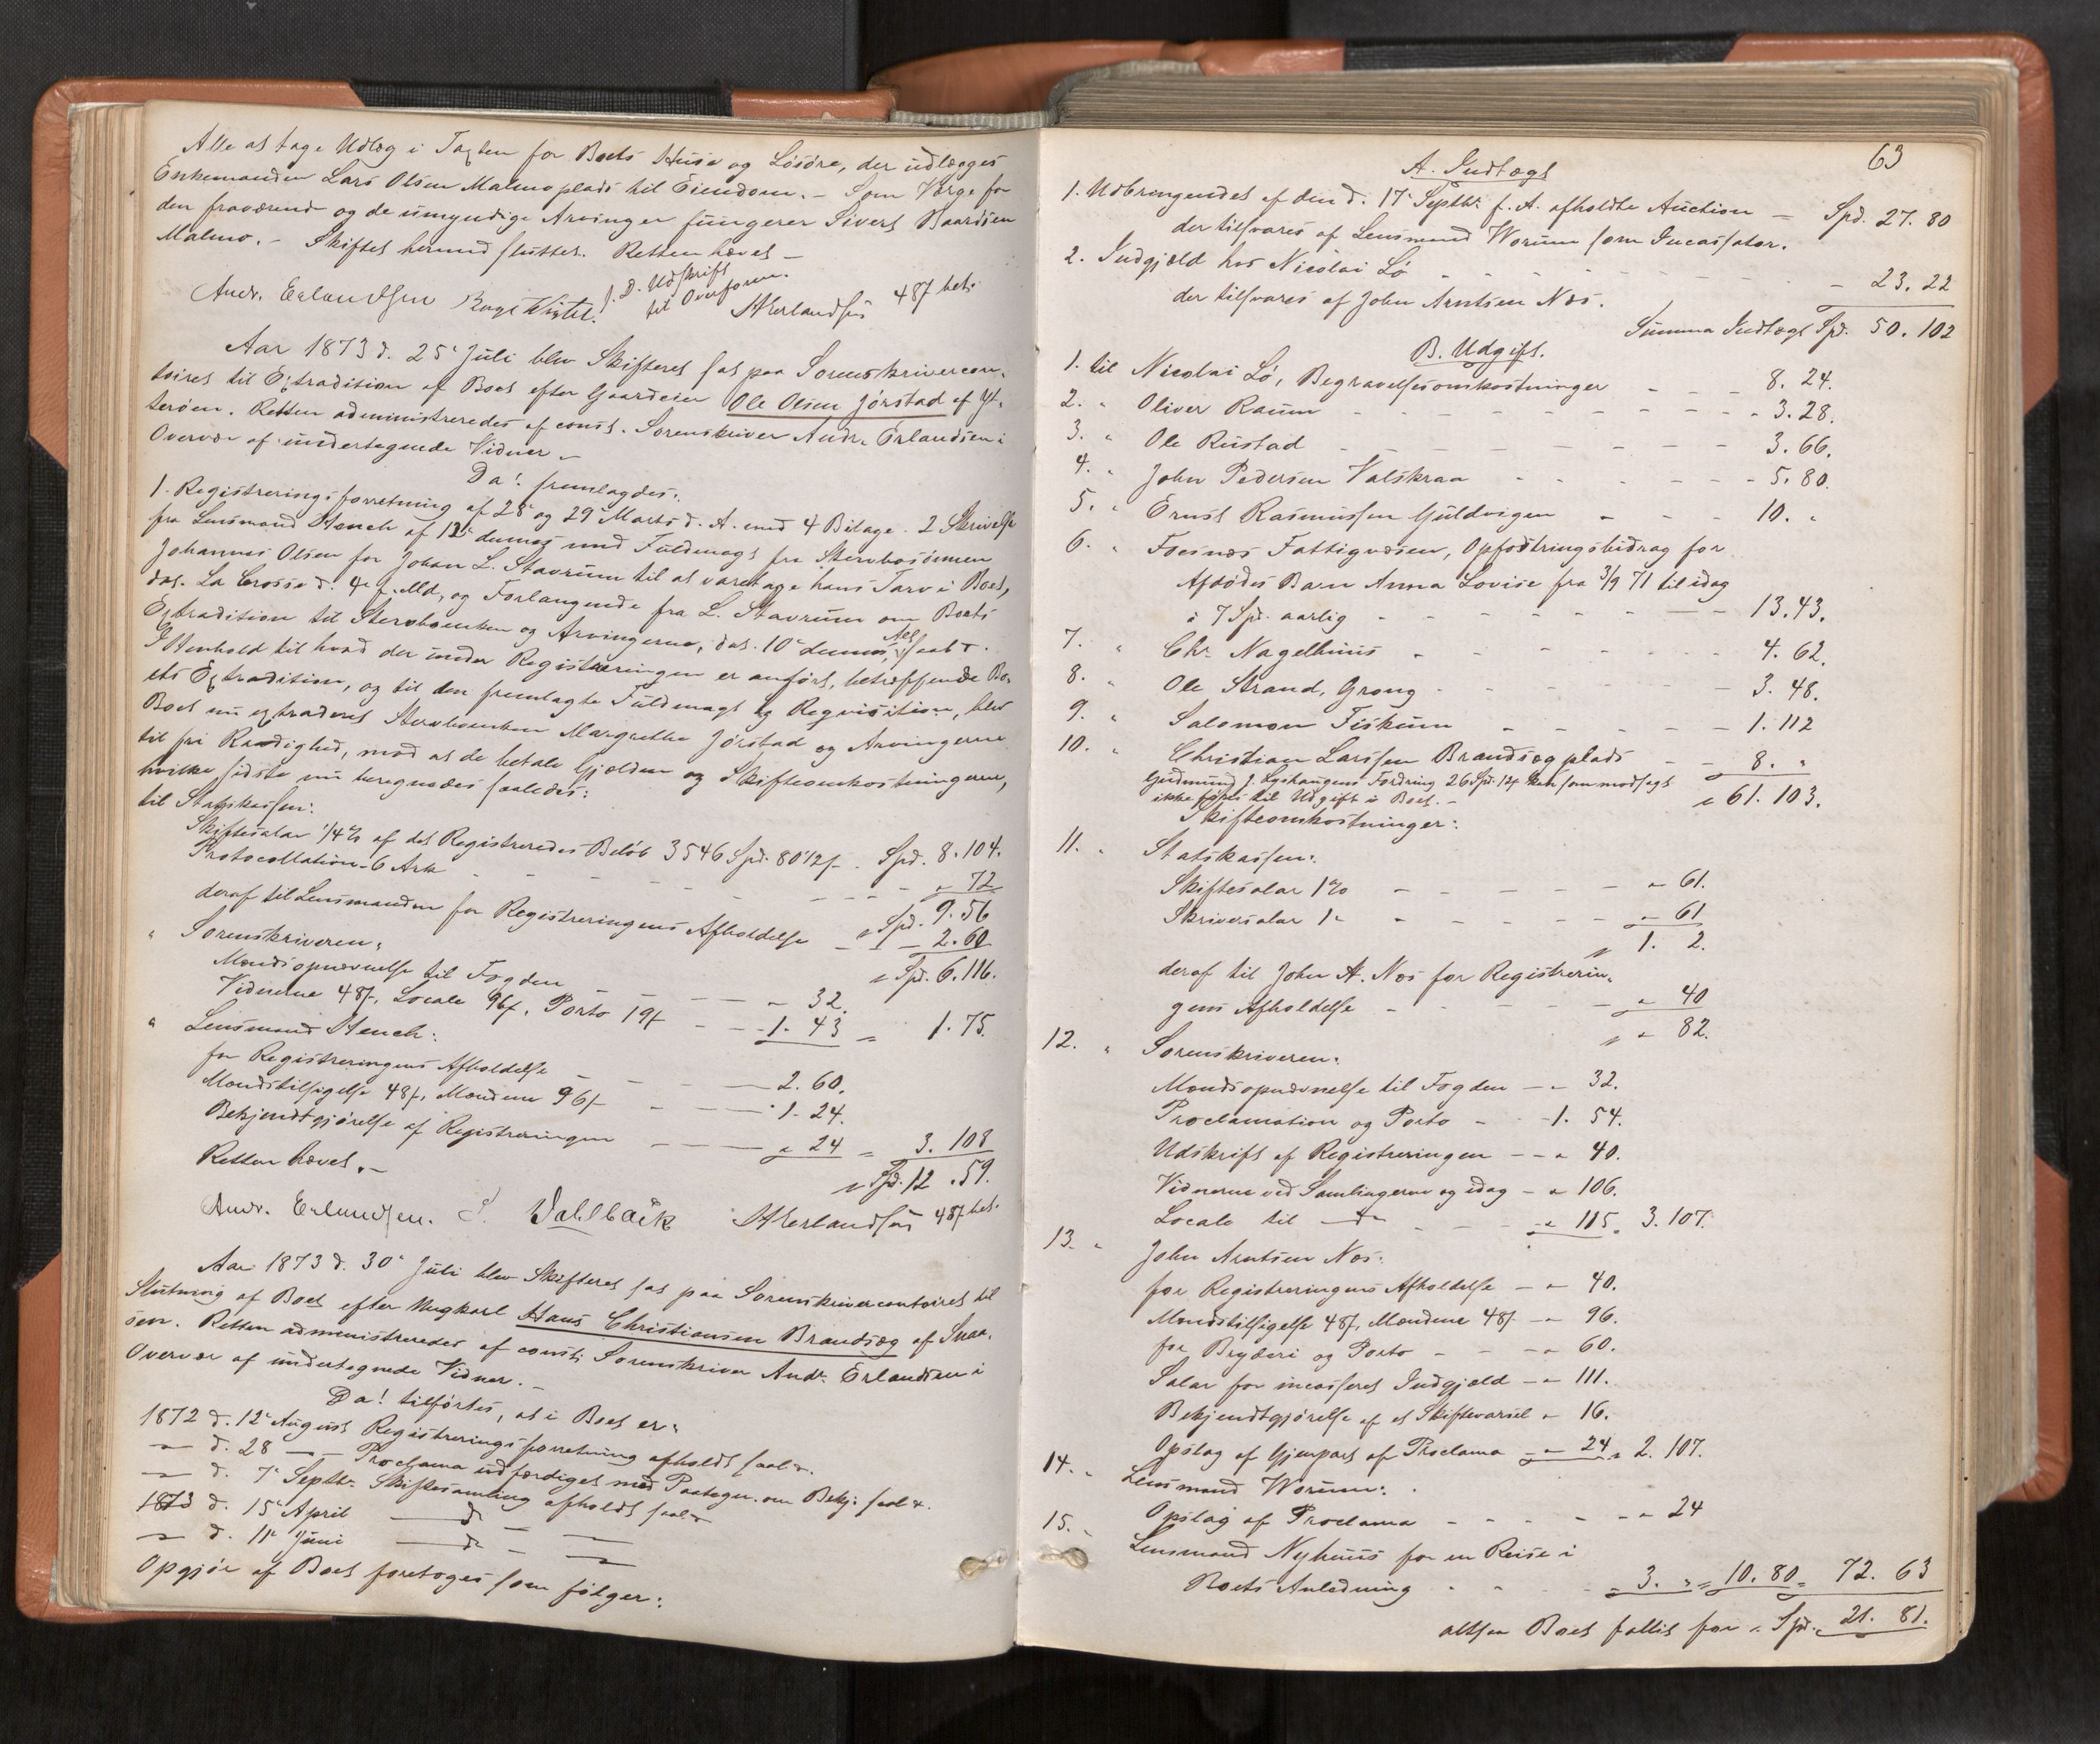 Alle at tage Udlæg i Taxten for Boets Huse og Løsøre, der udlægges
Enkemanden Lars Olsen Malmoplads til Eiendom. – Som Værge for
den fraværende og de umyndige Arvinger fungerer Sivert Baardsen
Malmo. – Skiftet hermed sluttet. Retten hævet –
Andr. Erlandsen
f. D. Udskrift
til Overform.
A Erlandsen 48ƒ bet.
Aar 1873 d. 25de Juli blev Skifteret sat paa Sorenskrivercon-
toiret til Extradition af Boet efter Gaardeier Ole Olsen Jørstad af Yt-
terøen. Retten administreredes af const. Sorenskriver Andr. Erlandsen i
Overvær af undertegnede Vidner. –
Da! fremlagdes:
1. Registreringsforretning af 28de og 29de Marts d. A. med 4 Bilage. 2 Skrivelse
fra Lensmand Hench af 12te dennes med Fuldmagt fra Stervbosønnen
Johannes Olsen for Johan L. Stavrum til at varetage hans Tarv i Boet,
dat. La Crosse d. 4de f. Md, og Forlangende fra L. Stavrum om Boets
Extradition til Stervboenken og Arvingerne, dat. 10de dennes, Alt saal..
I Henhold til hvad der under Registreringen er anført, betræffende Bo-
ets Extradition, og til den fremlagte Fuldmagt og Reqvisition, blev
Boet nu extraderet Stervboenken Margrethe Jørstad og Arvingerne
til fri Raadighed, mod at de betale Gjælden og Skifteomkostningerne,
hvilke sidste nu beregnedes saaledes:
til Statskassen:
Skiftesalær 1/4 % af det Registreredes Beløb 3546 Spd. 80 1/2 ƒ . Spd. 8. 104.
Protocollation 6 Ark - - - - - " 72
Spd. 9. 56
deraf til Lensmanden for Registreringens Afholdelse - - 2. 60
Spd. 6. 116.
" Sorenskriveren:
Mændsopnævnelse til Fogden - - - " 32.
Vidnerne 48ƒ, Locale 96ƒ, Porto 19ƒ - - 1. 43 = 1. 75.
" Lensmand Hench:
for Registreringens Afholdelse - - - 2. 60.
Mændstilsigelse 48ƒ, Mændene 96ƒ - - 1. 24.
Bekjendtgjørelse af Registreringen - - " 24 = 3. 108
Spd. 12. 59.
Retten hævet. –
Andr. Erlandsen. Dahlback A Erlandsen 48ƒ bet.
Aar 1873 d. 30te Juli blev Skifteret sat paa Sorenskrivercontoiret til
Slutning af Boet efter Ungkarl Hans Christiansen Brandsæg af Snaa-
sen. Retten administreredes af const. Sorenskriver Andr. Erlandsen i
Overvær af undertegnede Vidner. –
Da! tilførtes, at i Boet er:
1872 d. 12te August Registreringsforretning afholdt saal..
— d. 28 — Proclama udfærdiget med Paategn. om Bekj. saal..
— d. 7de Septbr. Skiftesamling afholdt saal..
1873 d. 15de April — do — —
— d. 11te Juni — do — —
Opgjør af Boet foretoges som følger:
63
A. Indtægt
1. Udbringendet af den d. 17de Septbr. f. A. afholdte Auction — Spd. 27. 80
der tilsvares af Lensmand Worum som Incassator.
2. Indgjæld hos Nicolai Lø - - - - - 23. 22
der tilsvares af John Arntsen Næs.
Summa Indtægt Spd. 50. 102
B. Udgift.
1. til Nicolai Lø, Begravelsesomkostninger - - 8. 24.
2. " Oliver Raum - - - - - 3. 28.
3. " Ole Rustad - - - - - 3. 66.
4. " John Pedersen Valskraa - - - - 5. 80.
5. " Ernst Rasmussen Guldvigen - - - 10. "
6. " Fosnæs Fattigvæsen, Opfostringsbidrag for
Afdødes Barn Anna Lovise fra 3/9 71 til idag
à 7 Spd. aarlig - - - - - 13. 43.
7. " Chr. Nagelhuus - - - - - 4. 62.
8. " Ole Strand, Grong - - - - 3. 48.
9. " Salomon Fiskum - - - - 1. 112
10. " Christian Larssen Brandsægplads - - 8. "
Gudmund J. Fordring 26 Spd. 12ƒ kan som modsagt
ikke føres til Udgift i Boet. –
" 61. 103.
Skifteomkostninger:
11. " Statskassen:
Skiftesalær 1% - - - - - " 61.
Skriversalær 1 " - - - - - " 61
" 1. 2.
deraf til John A. Næs for Registrerin-
gens Afholdelse - - - - " 40
" " 82.
12. " Sorenskriveren:
Mændsopnævnelse til Fogden - " 32.
Proclamation og Porto - - 1. 54.
Udskrift af Registreringen - - " 40.
Vidnerne ved Samlingerne og idag - " 106.
Locale til — do — - - " 115. 3. 107.
13. " John Arntsen Næs:
for Registreringens Afholdelse - " 40.
Mændstilsigelse 48ƒ, Mændene 48ƒ - " 96.
for Bryderi og Porto - - - " 60.
Salær for incasseret Indgjæld - " 111.
Bekjendtgjørelse af et Skiftevarsel " 16.
Opslag af Gjenpart af Proclama - " 24 " 2. 107.
14. " Lensmand Worum:
Opslag af Proclama - - - - " 24
15. " Lensmand Nyhuus for en Reise i
Boets Anledning - - - " 3. " = 10. 80 = 72. 63
altsaa Boet fallit for " Spd. 21. 81.